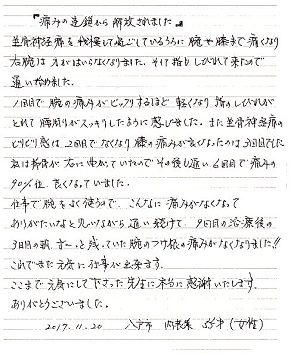 『痛みの連鎖から解放されました』
坐骨神経痛を我慢して過ごしているうちに腕や膝まで痛くなり
右腕は力がはいらなくなりました。そして指もしびれて来たので
通い始めました。
1回目で腕の痛みがビックリするほど軽くなり指のしびれが
とれて胸周りがスッキリしたように感じました。また坐骨神経痛の
ピリピリ感は、2回目でなくなり膝の痛みが良くなったのは3回目でした
私は背骨が右に曲がっていたのでその後も通い6回目で痛みの
90%位、良くなっていました。
仕事で腕をよく使うので、こんなに痛みがなくなって
ありがたいなと思いながら通い続けて、9回目の治療後の
3日目の朝、ずーっと残っていた腕のつけ根の痛みがなくなりました!!
これでまた元気に仕事が出来ます。
ここまで元気にして下さった先生に本当に感謝いたします。
ありがとうございました。
2017.11.20 内 55才(女性)